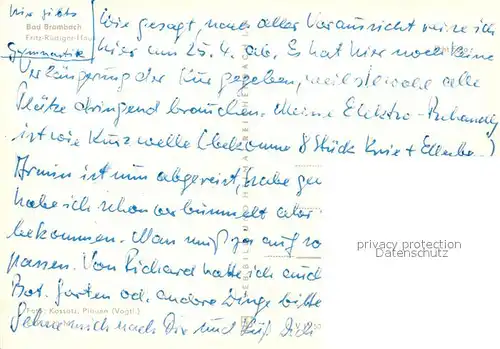 hier gibts
Bad Brambach
Fritz-Rüdiger-Haus
Gymnastik
Wie gesagt, nach aller Voraussicht reise ich
hier am 25.4. ab. Es hat hier noch keine
Verlängerung der Kur gegeben, weil sie wohl alle
Plätze dringend brauchen. Meine Elektro-Behandlg
ist wie Kurzwelle (bekomme 8 Stück Knie + Ellenbo.)
Armin ist nun abgereist, habe
habe ich schon verbummelt aber
bekommen. Man muß ja auf so
passen. Von Richard hatte ich auch
Bot. Garten od. andere Dinge bitte
Foto: Kossatz, Plauen (Vogtl.)
Sehne mich nach Dir und Küß Dich
privacy protection
Datenschutz